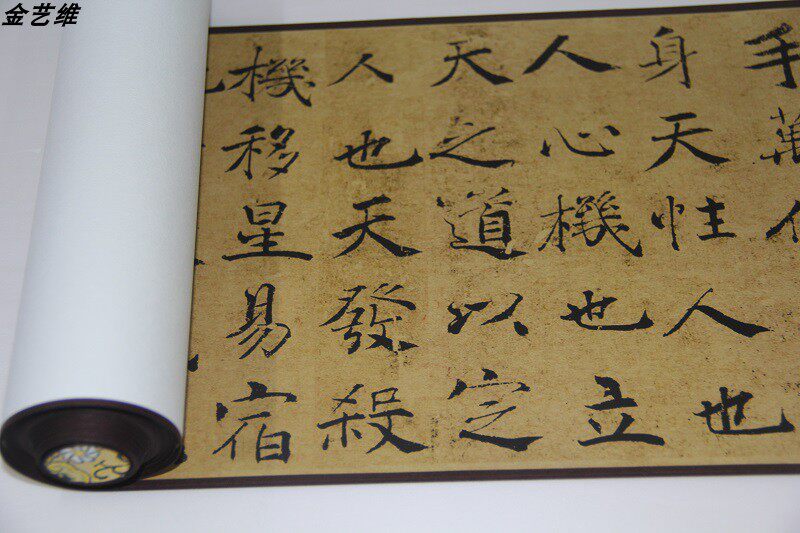 金艺维
手萬
身天性人也
人心機也立
天之道以定
人也天發殺
機移星易宿